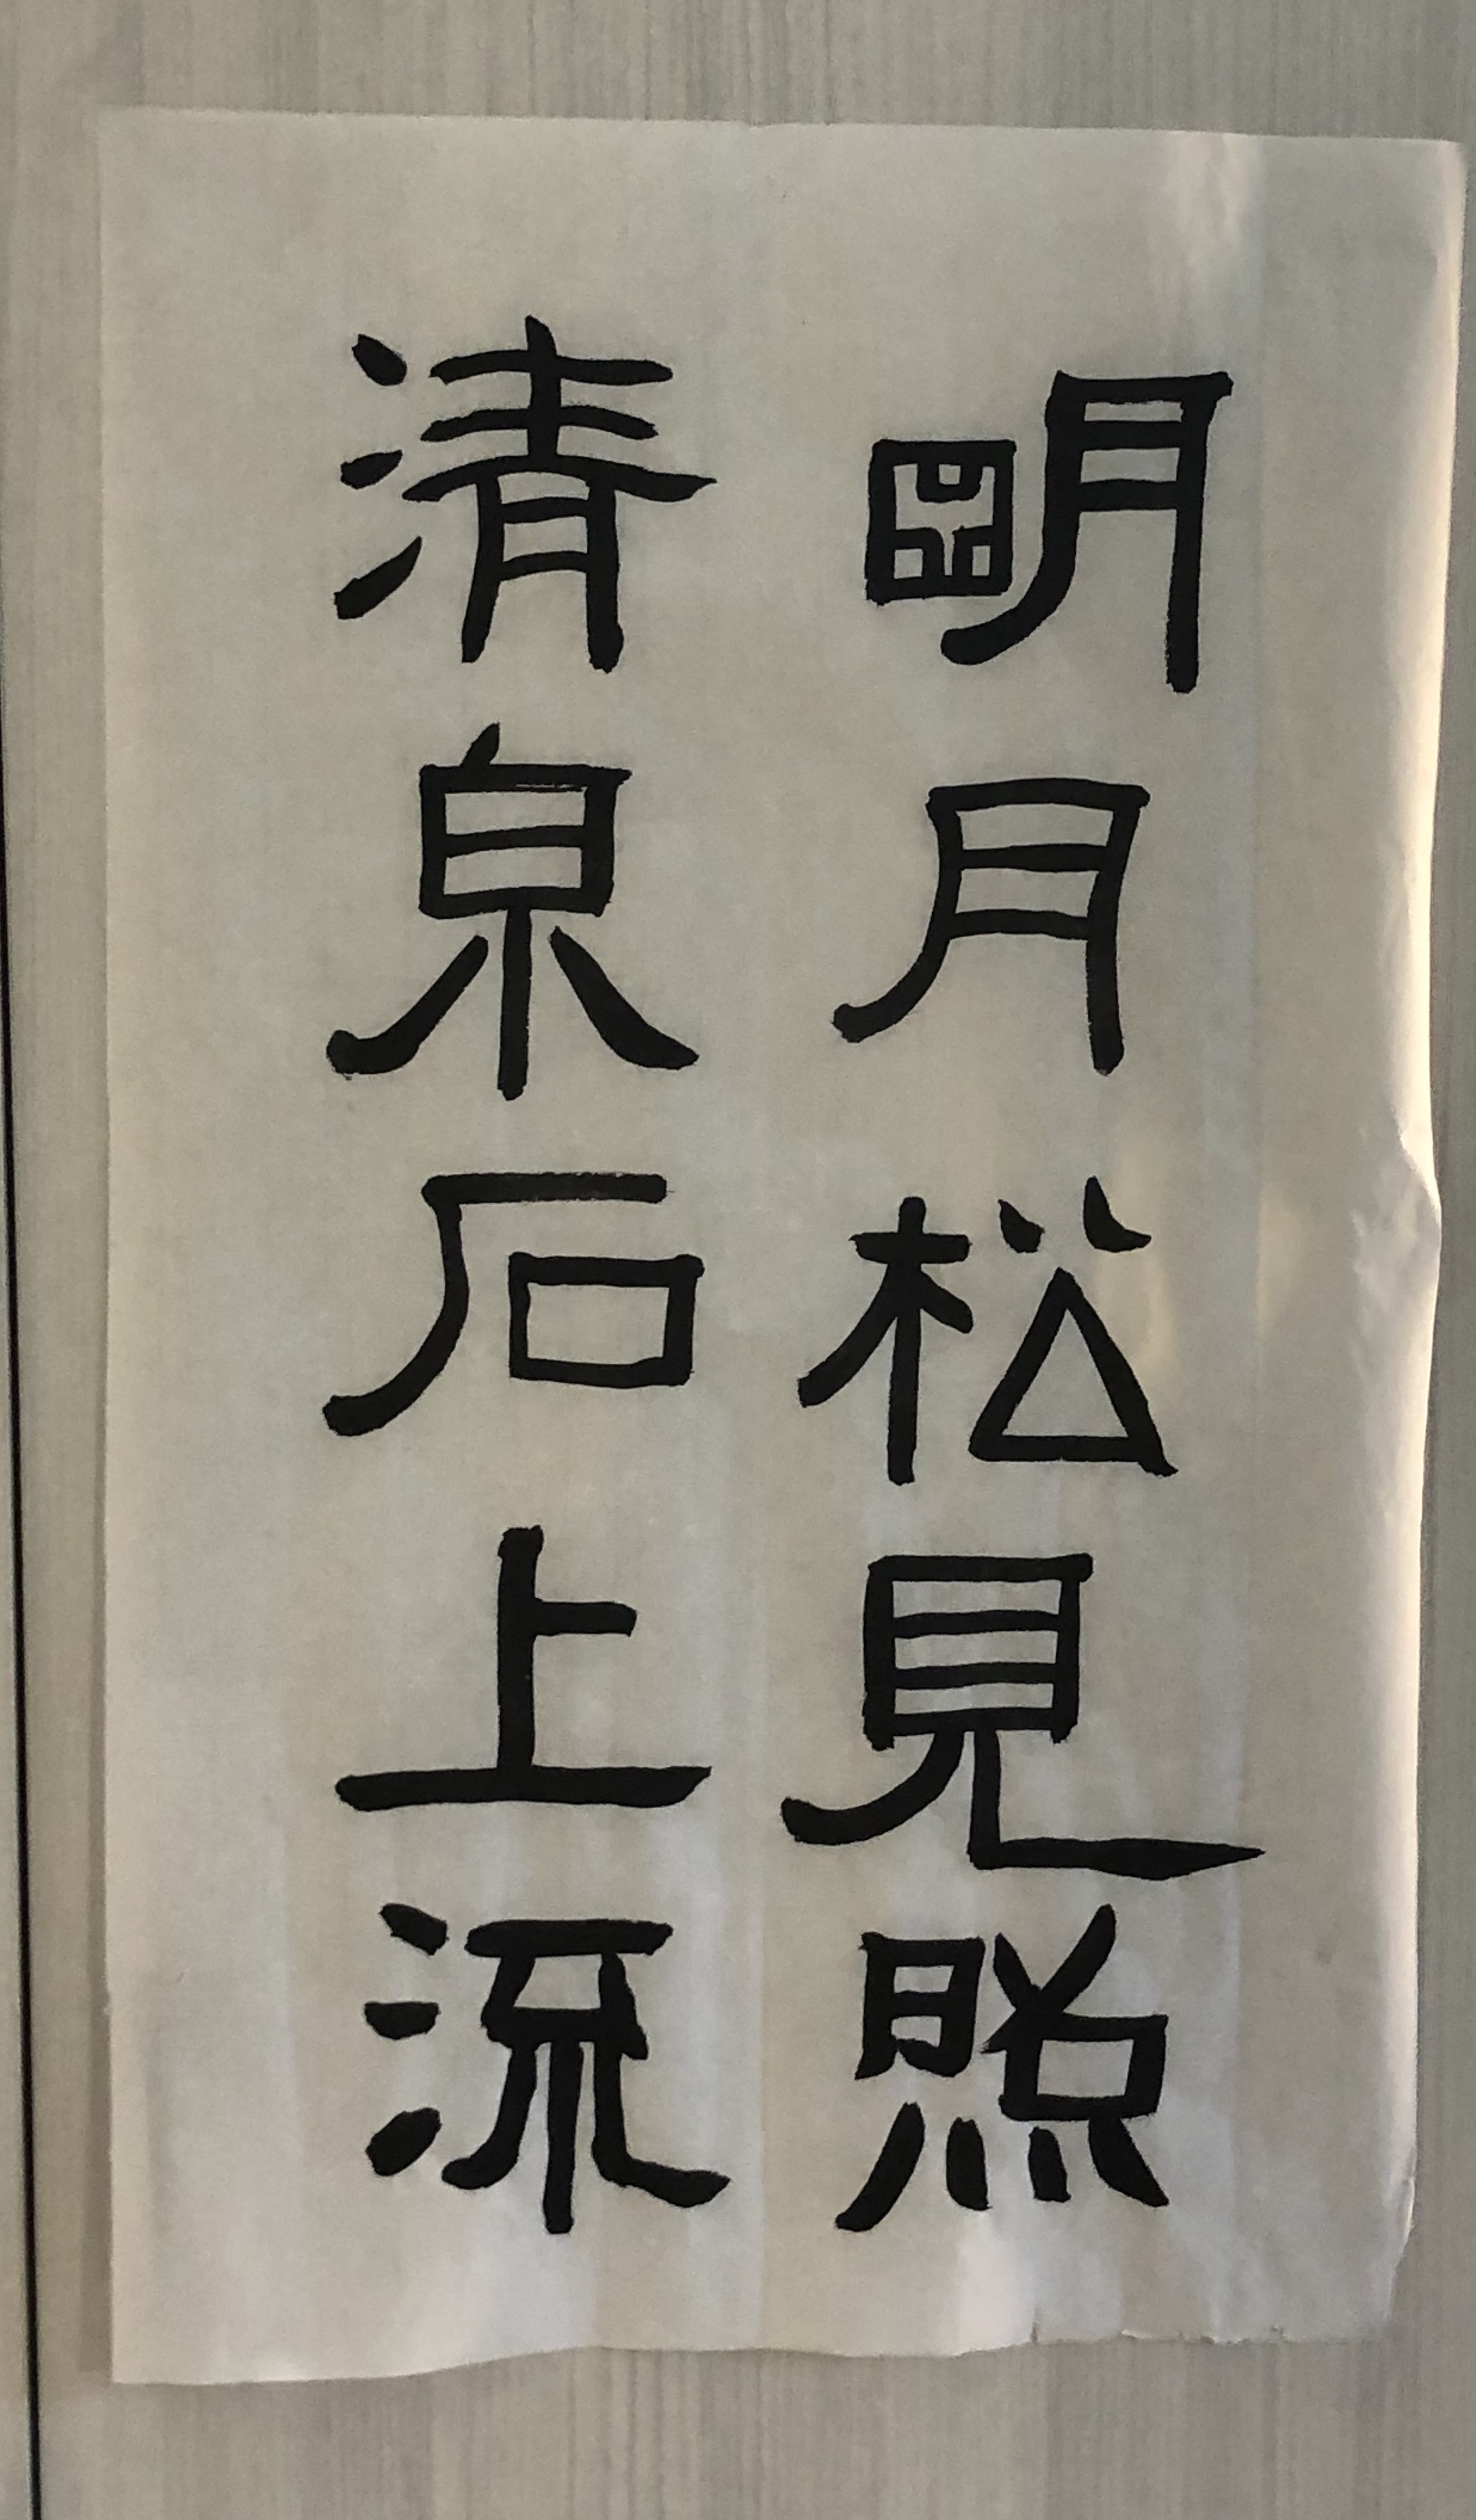 明月松見照
清泉石上流